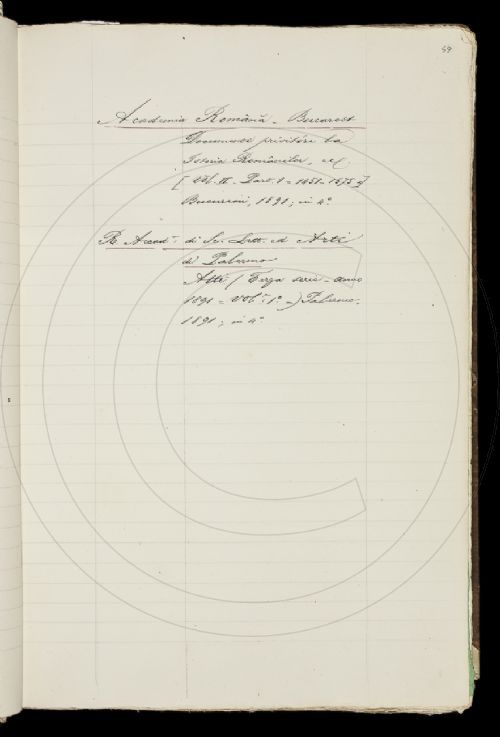 59
Academia Română - Bucarest
Documente privitóre la
Istoria Românilor, ecc.
[Vol. II - Part. 1 = 1451-1575]
Bucuresci, 1891; in 4º
R. Accad. di Sc. Lett. ed Arti
di Palermo
Atti (Terza serie - anno
1891 = Vol. 1º =) Palermo,
1891; in 4º